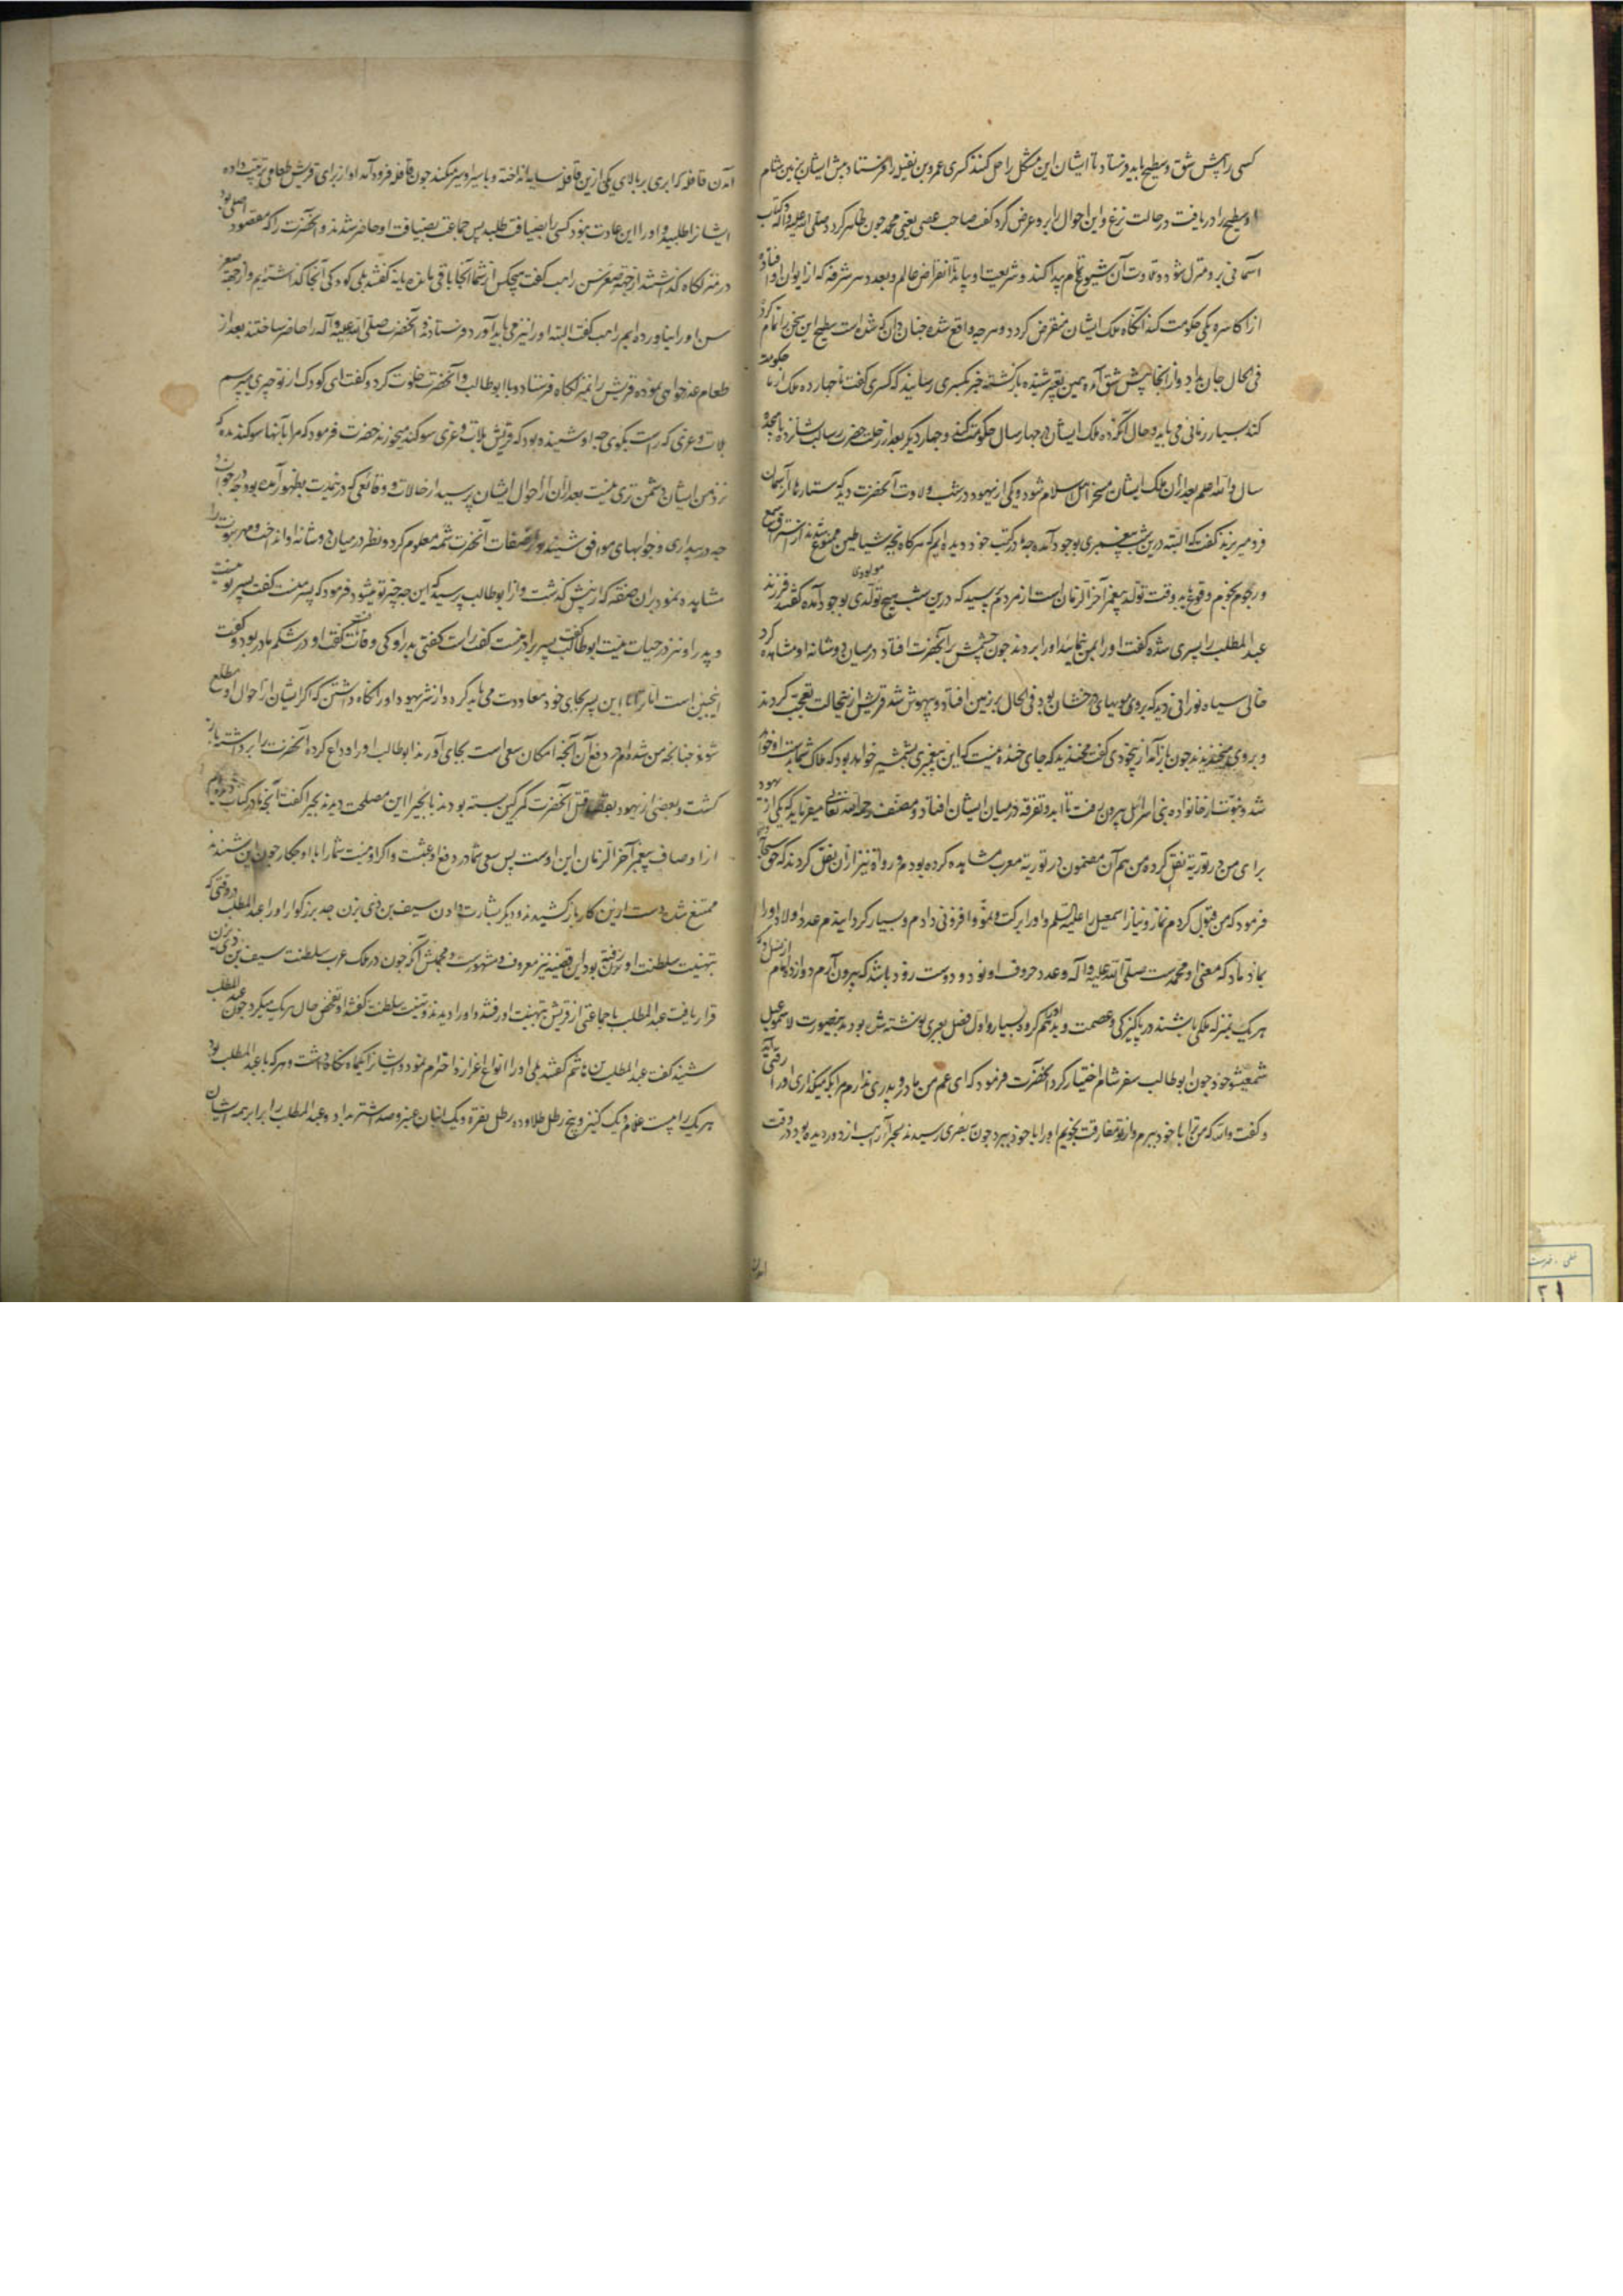 کسی را پیش شق و سطیح باید فرستاد تا ایشان این مشکل را حل کنند کسری عمرو بن نفیله را فرستاد پیش ایشان بزمین شام
او سطیح را دریافت در حالت نزع و این احوال را برو عرض کرد گفت صاحب عصی یعنی محمد چون ظاهر گردد صلی الله علیه و آله و کتاب
آسمانی برو منزل شود و تلاوت آن شیوع تمام پیدا کند و شریعت او پاید تا انقراض عالم و بعدد هر شرفه که از ایوان او افتاده
از اکاسره یکی حکومت کند آنگاه ملک ایشان منقرض گردد و هرچه واقع شده چنان دان که شده است سطیح این سخن را تمام کرد
فی الحال جان بداد و از آنجا پیش شق آمده همین تقریر شنیده بازگشته خبر بکسری رسانید که کسری گفت تا چهارده ملک از ما حکومت
کند بسیار زمانی می باید و حال آنکه ده ملک ایشان در چهار سال حکومت کنند و چهار دیگر بعد از رحلت حضرت رسالت پناه تا پانزده
سال والله اعلم بعد از آن ملک ایشان مسخر اهل اسلام شود و یکی از یهود در شب ولادت آنحضرت دید که ستارها از آسمان
فرو میریزند گفت که البته درین شب پیغمبری بوجود آمده چه در کتب خود دیده ایم که هرگاه که شیاطین ممنوع شدند از استراق سمع
و رجوم نجوم وقوع یابد وقت تولد پیغمبر آخر الزمان است از مردم پرسید که درین شب هیچ مولودی تولدی بوجود آمده گفتند فرزند
عبد المطلب را پسری شده گفت او را بمن نمائید او را بردند چون چشمش بر آنحضرت افتاد در میان دو شانه او مشاهده کرد
خالی سیاه نورانی دید که بروی مویهای درخشان بود فی الحال بر زمین افتاد و بیهوش شد قریش ازینحالت تعجب کردند
و بروی میخندیدند چون باز آمد از بیخودی گفت مخندید که جای خنده نیست که این پیغمبری بشمشیر خواهد بود که هلاک شما بدست او خواهد
شد و نبوت از خانواده بنی اسرائیل بیرون رفت تا ابد و تفرقه در میان ایشان افتاد و مصنف رحمه الله تعالی میفرماید که یکی از یهود
برای من در توریة نقل کرده من هم آن مضمون در توریة معرب مشاهده کرده بودم و رواة نیز از آن نقل کردند که حق سبحانه
فرمود که من قبول کردم نماز و نیاز اسمعیل را علیه السلم و او را برکت و نمو و افزونی دادم و بسیار گردانیدم عدد اولاد او را
بماذ ماد که معنی او محمدست صلی الله علیه و آله و عدد حروف او نود و دو است زود باشد که بیرون آرم دوازده امام از نسل او که
هر یک بمنزله ملکی باشند در پاکیزگی و عصمت و بدهم او را گروه بسیار و اول فصل بعبری نوشته شده بود بدینصورت لاشموعیل
شمعیثو خود چون ابوطالب سفر شام اختیار کرد آنحضرت فرمود که ای عم من مادر و پدری ندارم مرا بکه میگذاری او را رقتی آمد
و گفت والله که من ترا با خود ببرم و از تو مفارقت نجویم او را با خود ببرد چون ببصری رسیدند بحیرا راهب از دور دیده بود در وقت
آمدن
آمدن قافله که ابری بر بالای یکی ازین قافله سایه انداخته و با سیر او سیر میکند چون قافله فرود آمد او از برای قریش طعامی ترتیب داده
ایشانرا طلبید و او را این عادت نبود کسی را بضیافت طلبد پس جماعت بضیافت او حاضر شدند و آنحضرت را که مقصود اصلی بود
در منزلگاه گذاشتند از جهة صغر سن راهب گفت هیچکس از شما آنجا باقی مانده یا نه گفتند بلی کودکی آنجا گذاشته ایم و از جهة صغر
سن او را نیاورده ایم راهب گفت البته او را نیز می باید آورد فرستادند و آنحضرت صلی الله علیه و آله را حاضر ساختند بعد از
طعام عذرخواهی نموده قریش را بمنزلگاه فرستاد و با ابوطالب و آنحضرت خلوت کرد و گفت ای کودک از تو چیزی میپرسم
بلات و عزی که راست بگوی چه او شنیده بود که قریش بلات و عزی سوگند میخورند حضرت فرمود که مرا بآنها سوگند مده که
نزد من ایشان دشمن تری نیست بعد از آن از احوال ایشان پرسید از حالات و وقائعی که در نمدت بظهور آمده بود چه در خواب و
چه در بیداری و جوابهای موافق شنید و از صفات آنحضرت شمه معلوم کرد و نظر در میان دو شانه او انداخت و مهر نبوت را
مشاهده نمود بران صفته که از پیش گذشت و از ابوطالب پرسید که این چه چیز تو میشود فرمود که پسر منست گفت پسر تو نیست
و پدر او نیز در حیات نیست ابوطالب گفت پسر برادر منست گفت راست گفتی پدر او کی وفات یافت گفت او در شکم مادر بود و گفت
اینچنین است اما ترا با این پسر بجای خود معاودت می باید کرد و از شر یهود او را نگاه داشتن که اگر ایشان از احوال او مطلع
شوند چنانچه من شده ام در دفع آن آنچه امکان سعی است بجای آورند ابوطالب او را وداع کرده آنحضرت را برداشته باز
گشت و بعضی از یهود بقصد قتل آنحضرت کمر کین بسته بودند با بحیرا این مصلحت دیدند بحیرا گفت آنچه ما در کتاب دیده ایم
از اوصاف پیغمبر آخر الزمان این اوست پس سعی شما در دفع او عبثست و اگر او نیست شما را با او چکار چون این شنیدند
ممتنع شده دست ازین کار باز کشیدند و دیگر بشارت دادن سیف بن ذی یزن جد بزرگوار او را عبد المطلب در وقتی که
بتهنیت سلطنت او رفته بود این قضیه نیز معروف و مشهورست و مجملش آنکه چون در ملک عرب سلطنت سیف بن ذی یزن
قرار یافت عبد المطلب با جماعتی از قریش بتهنیت او رفتند و او را دیدند و تهنیت سلطنت گفتند او تفحص حال هر یک میکرد چون عبد المطلب
شنید گفت عبد المطلب بن هاشم گفتند بلی او را انواع اعزاز و احترام نمود و ایشانرا یکماه نگاه داشت و هر که با عبد المطلب بود
هر یک را بیست غلام و یک کنیز و پنج رطل طلا و ده رطل نقره و یک انبان عنبر و صد اشتر بداد و عبد المطلب را برابر همه ایشان